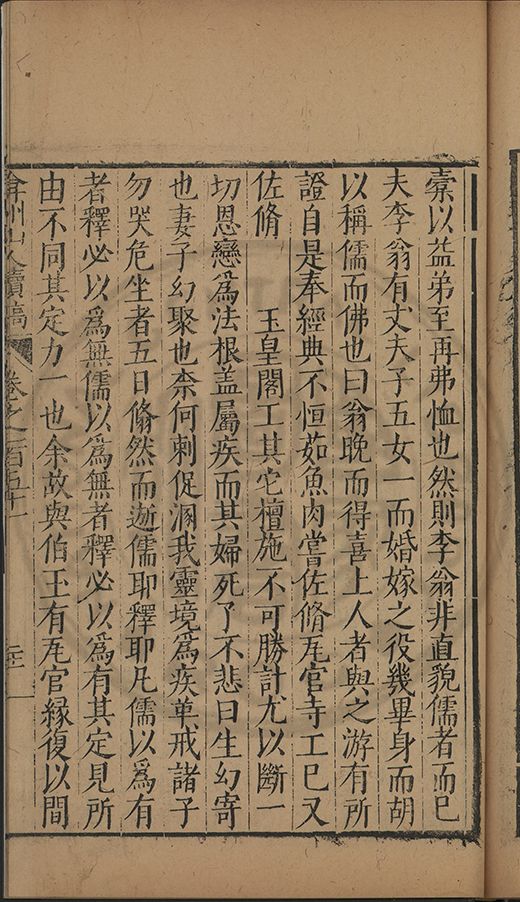 橐以益弟至再弗恤也然則李翁非直貌儒者而已
夫李翁有丈夫子五女一而婚嫁之役幾畢身而胡
以稱儒而佛也曰翁晚而得喜上人者與之游有所
證自是奉經典不恒茹魚肉嘗佐脩瓦官寺工巳又
佐脩　　玉皇閣工其它檀施不可勝計尤以斷一
切恩戀爲法根盖屬疾而其婦死了不悲曰生幻寄
也妻子幻聚也柰何剌促溷我靈境爲疾革戒諸子
勿哭危坐者五日翛然而逝儒耶釋耶凡儒以爲有
者釋必以爲無儒以爲無者釋必以爲有其定見所
由不同其定力一也余故與伯玉有瓦官縁復以間
弇州山人續稿　卷之一百五十一